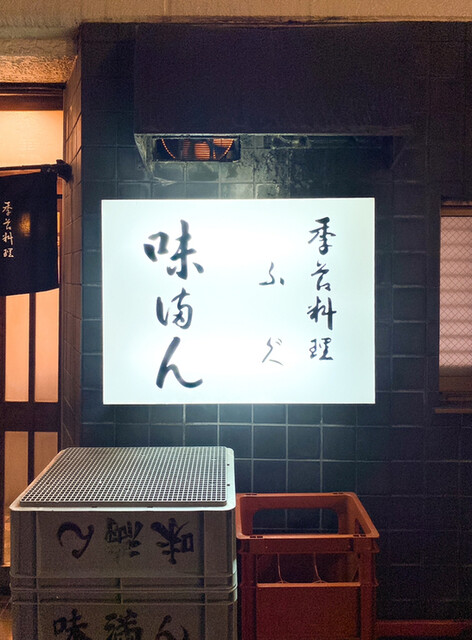 季節料理
季節料理
ふぐ
味満ん
味満ん
味満ん